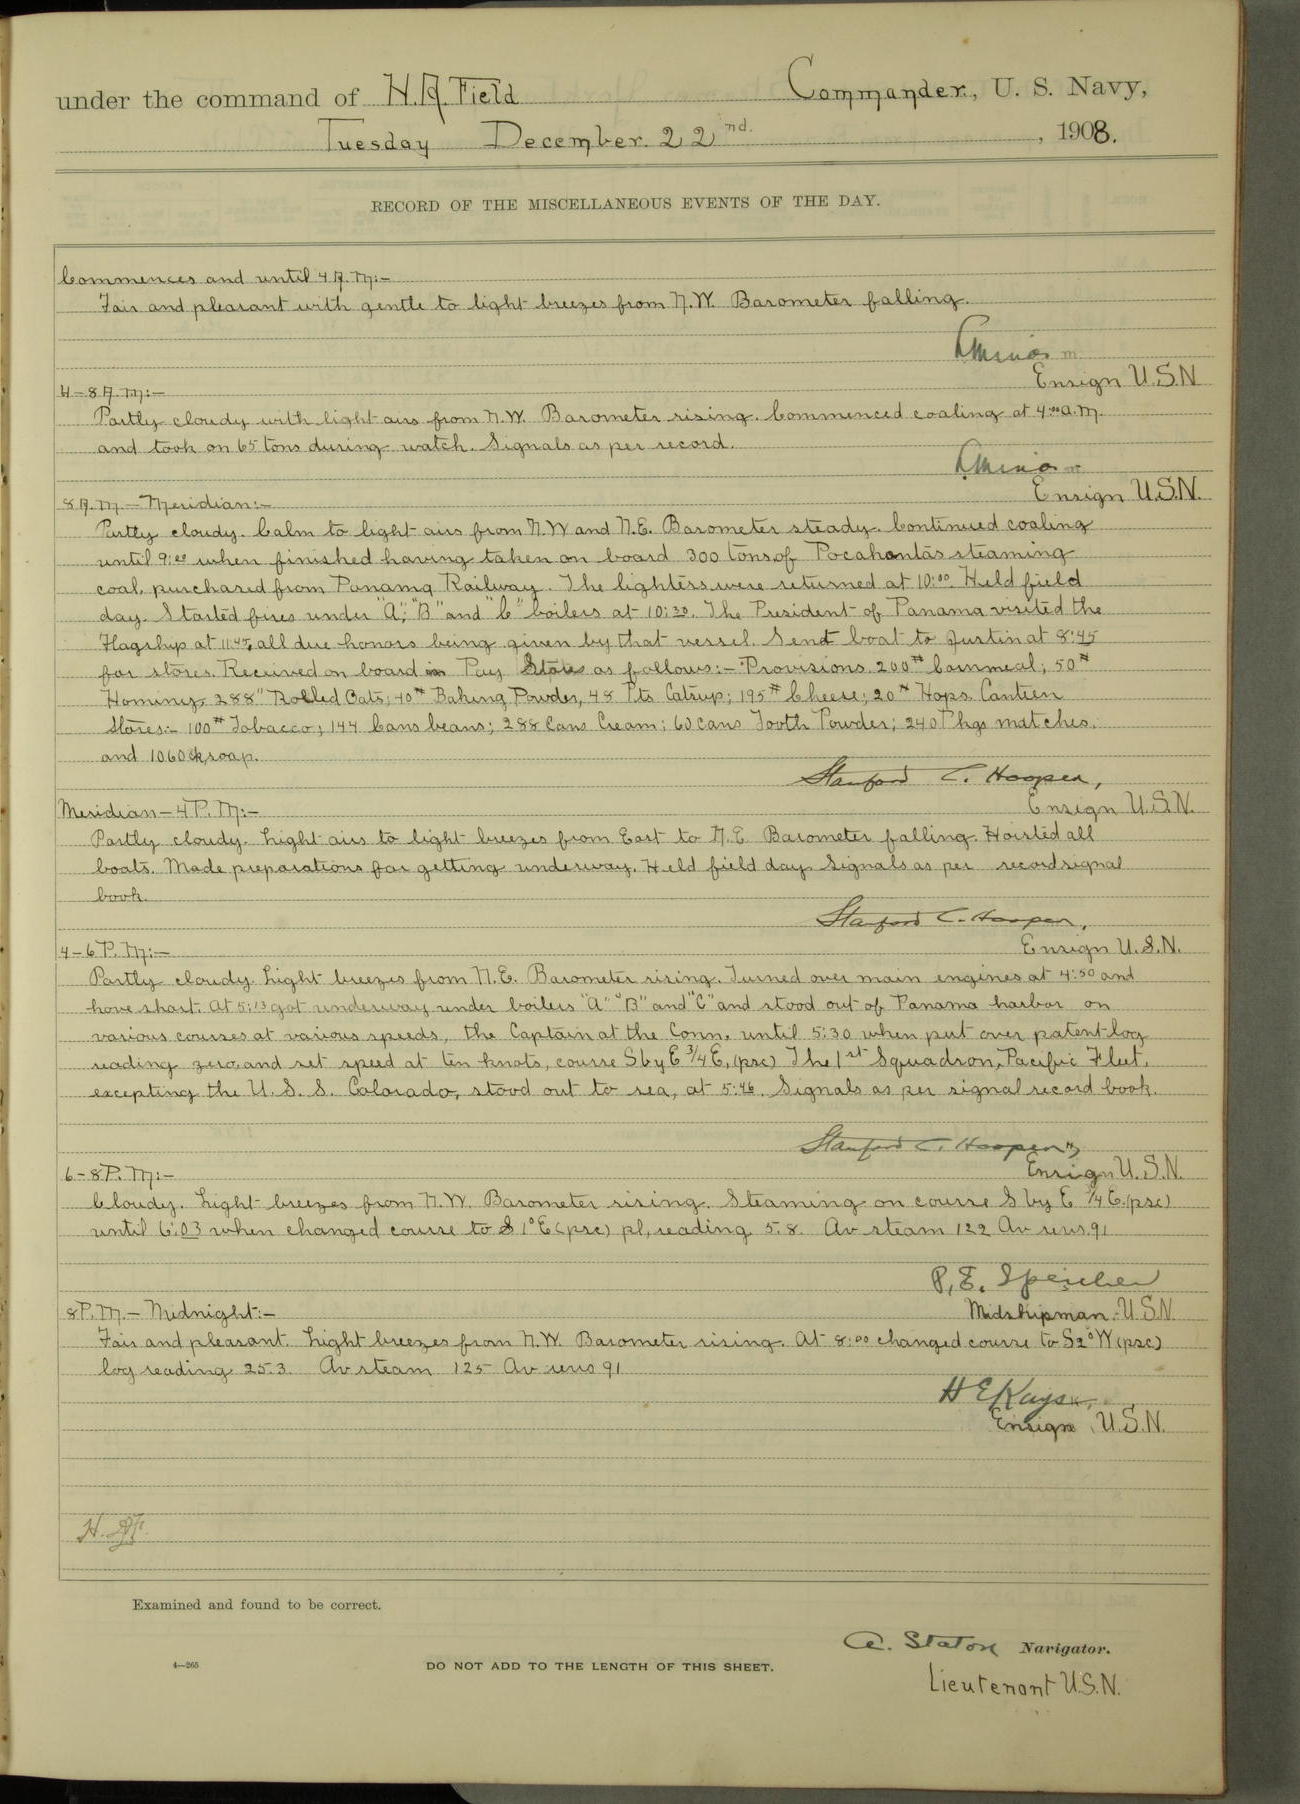 under the command of H.A. Field Commander, U. S. Navy,
Tuesday December. 22nd. , 1908.
RECORD OF THE MISCELLANEOUS EVENTS OF THE DAY.
Commences and until 4 A.M:-
Fair and pleasant with gentle to light breezes from N.W. Barometer falling.
Ensign U.S.N
4-8 A.M:-
Partly cloudy with light airs from N.W. Barometer rising. Commenced coaling at 4:00 a.m.
and took on 65 tons during watch. Signals as per record.
Ensign U.S.N.
8 A.M.- Meridian:-
Partly cloudy. Calm to light airs from N.W and N.E. Barometer steady. Continued coaling
until 9:00 when finished having taken on board 300 tons of Pocahontas steaming
coal, purchased from Panama Railway. The lighters were returned at 10:00. Held field
day. Started fires under "A", "B" and "C" boilers at 10:30. The President of Panama visited the
Flagship at 11:45, all due honors being given by that vessel. Sent boat to Justin at 8:45
for stores. Received on board in Pay Stores as follows:- Provisions. 200# Cornmeal; 50#
Hominy 288" Rolled Oats; 40# Baking Powder, 48 Pts Catsup; 195# Cheese; 20# Hops. Canteen
Stores:- 100# Tobacco; 144 Cans beans; 288 Cans Cream; 60 cans Tooth Powder; 240 Pkgs matches.
and 1060 ck soap.
Stanford C. Hooper,
Ensign U.S.N.
Meridian-4 P.M:-
Partly cloudy. Light airs to light breezes from East to N.E Barometer falling. Hoisted all
boats. Made preparations for getting underway. Held field day. Signals as per record signal
book.
Stanford C. Hooper,
Ensign U.S.N.
4-6 P.M:-
Partly cloudy. Light breezes from N.E. Barometer rising. Turned over main engines at 4:50 and
hove short. At 5:13 got underway under boilers "A" "B" and "C" and stood out of Panama harbor on
various courses at various speeds, the Captain at the Conn, until 5:30 when put over patent log
reading zero, and set speed at ten knots, course S by E 3/4 E, (psc) The 1st Squadron, Pacific Fleet,
excepting the U. S. S. Colorado, stood out to sea, at 5:46. Signals as per signal record book.
Stanford C. Hooper,
Ensign U.S.N.
6-8 P.M:-
Cloudy. Light breezes from N.W. Barometer rising. Steaming on course S by E 3/4 E.(psc)
until 6:03 when changed course to S 1° E (psc) pl, reading 5.8. Av steam 122 Av revs. 91
P. E. Speicher
Midshipman. U.S.N.
8 P.M.- Midnight:-
Fair and pleasant. Light breezes from N.W. Barometer rising. At 8:00 changed course to S2°W (psc)
log reading 25.3. Av steam 125 Av revs 91
H E Kays,
Ensign, U.S.N.
H. A.F.
Examined and found to be correct.
A. Staton Navigator.
4—265 DO NOT ADD TO THE LENGTH OF THIS SHEET.
Lieutenant U.S.N.